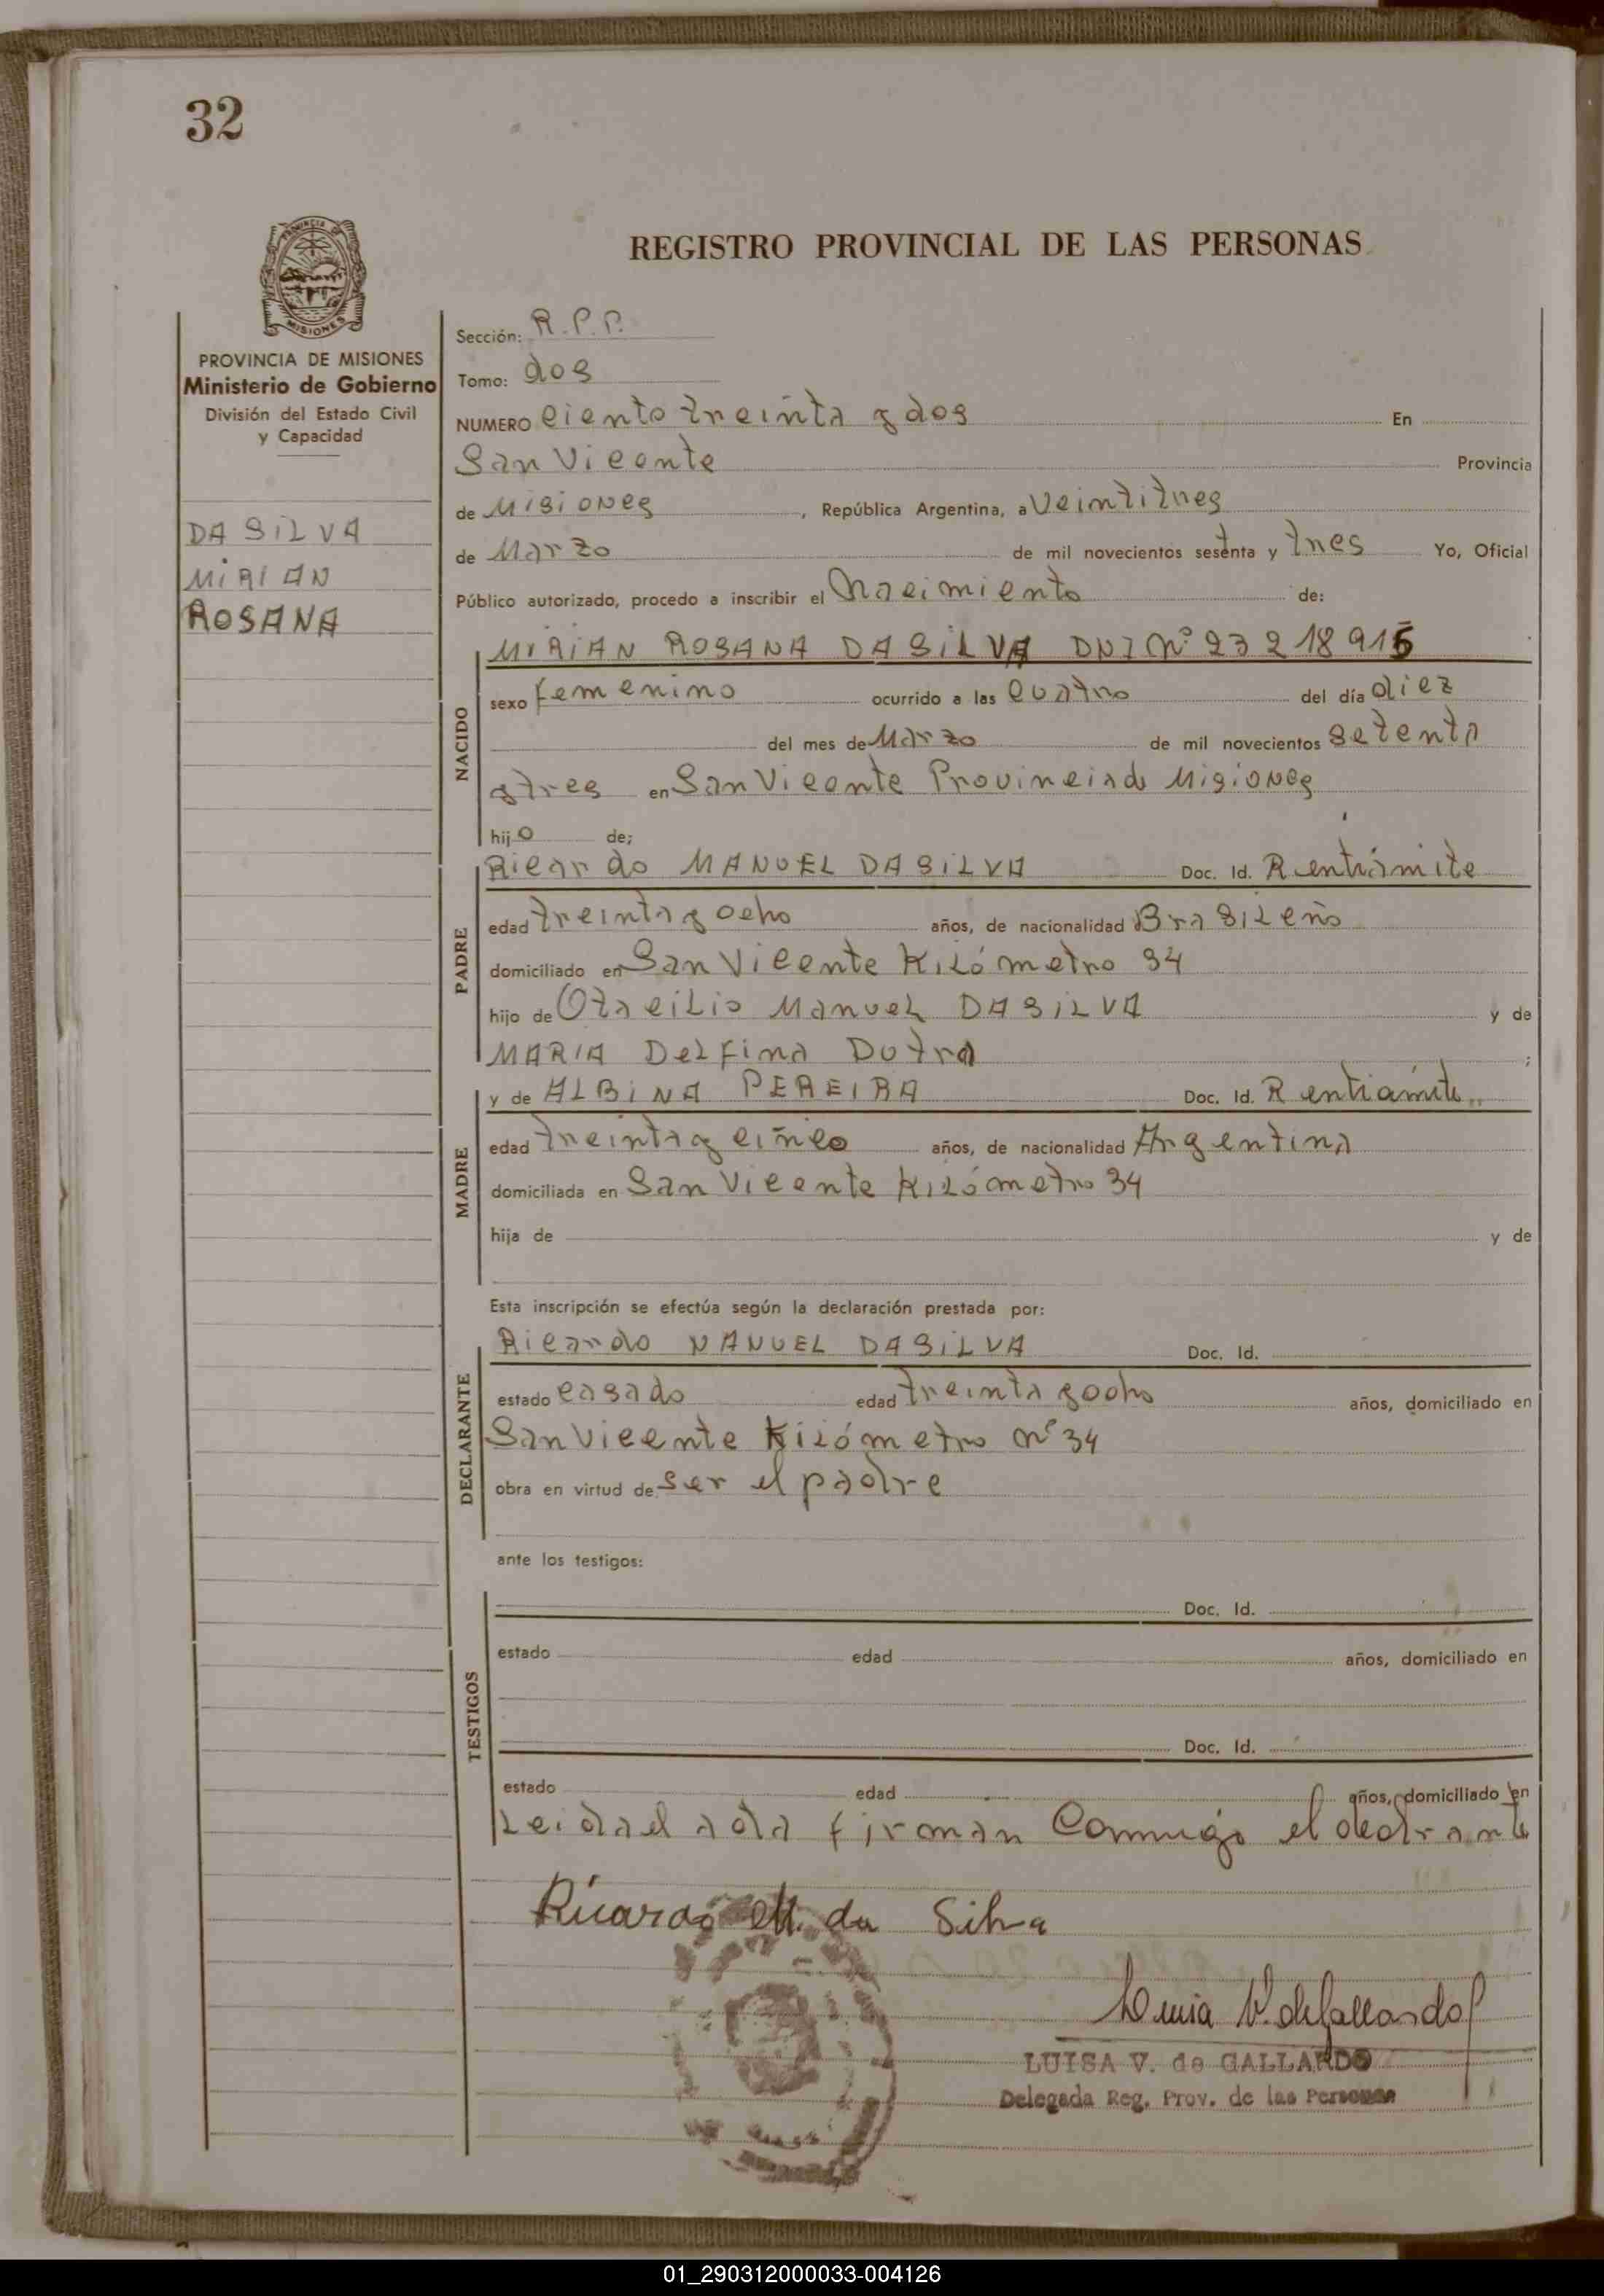 32
PROVINCIA DE MISIONES
Ministerio de Gobierno
División del Estado Civil
y Capacidad
DA SILVA
MIRIAN
ROSANA
REGISTRO PROVINCIAL DE LAS PERSONAS
Sección: R.P.P.
Tomo: dos
NUMERO ciento treinta y dos En
San Vicente Provincia
de Misiones, República Argentina, a Veintitres
de Marzo de mil novecientos sesenta y tres Yo, Oficial
Público autorizado, procedo a inscribir el Nacimiento de:
NACIDO
MIRIAN ROSANA DA SILVA DNI Nº 23 218 915
sexo femenino ocurrido a las cuatro del día diez
del mes de Marzo de mil novecientos setenta
y tres en San Vicente Provincia de Misiones
hijo de;
PADRE
Ricardo MANUEL DA SILVA Doc. Id. R en trámite
edad treinta y ocho años, de nacionalidad Brasileño
domiciliado en San Vicente Kilómetro 34
hijo de Otacilio Manuel DA SILVA y de
MARIA Delfina Dutra ;
MADRE
y de ALBINA PEREIRA Doc. Id. R en trámite
edad treinta y cinco años, de nacionalidad Argentina
domiciliada en San Vicente Kilómetro 34
hija de y de
Esta inscripción se efectúa según la declaración prestada por:
DECLARANTE
Ricardo MANUEL DA SILVA Doc. Id.
estado casado edad treinta y ocho años, domiciliado en
San Vicente Kilómetro Nº 34
obra en virtud de ser el padre
ante los testigos:
TESTIGOS
Doc. Id.
estado edad años, domiciliado en
Doc. Id.
estado edad años, domiciliado en
Leida el acta firman Conmigo el declarante
Ricardo M. da Silva
Luisa V. de Gallardo
LUISA V. de GALLARDO
Delegada Reg. Prov. de las Personas
01_290312000033-004126